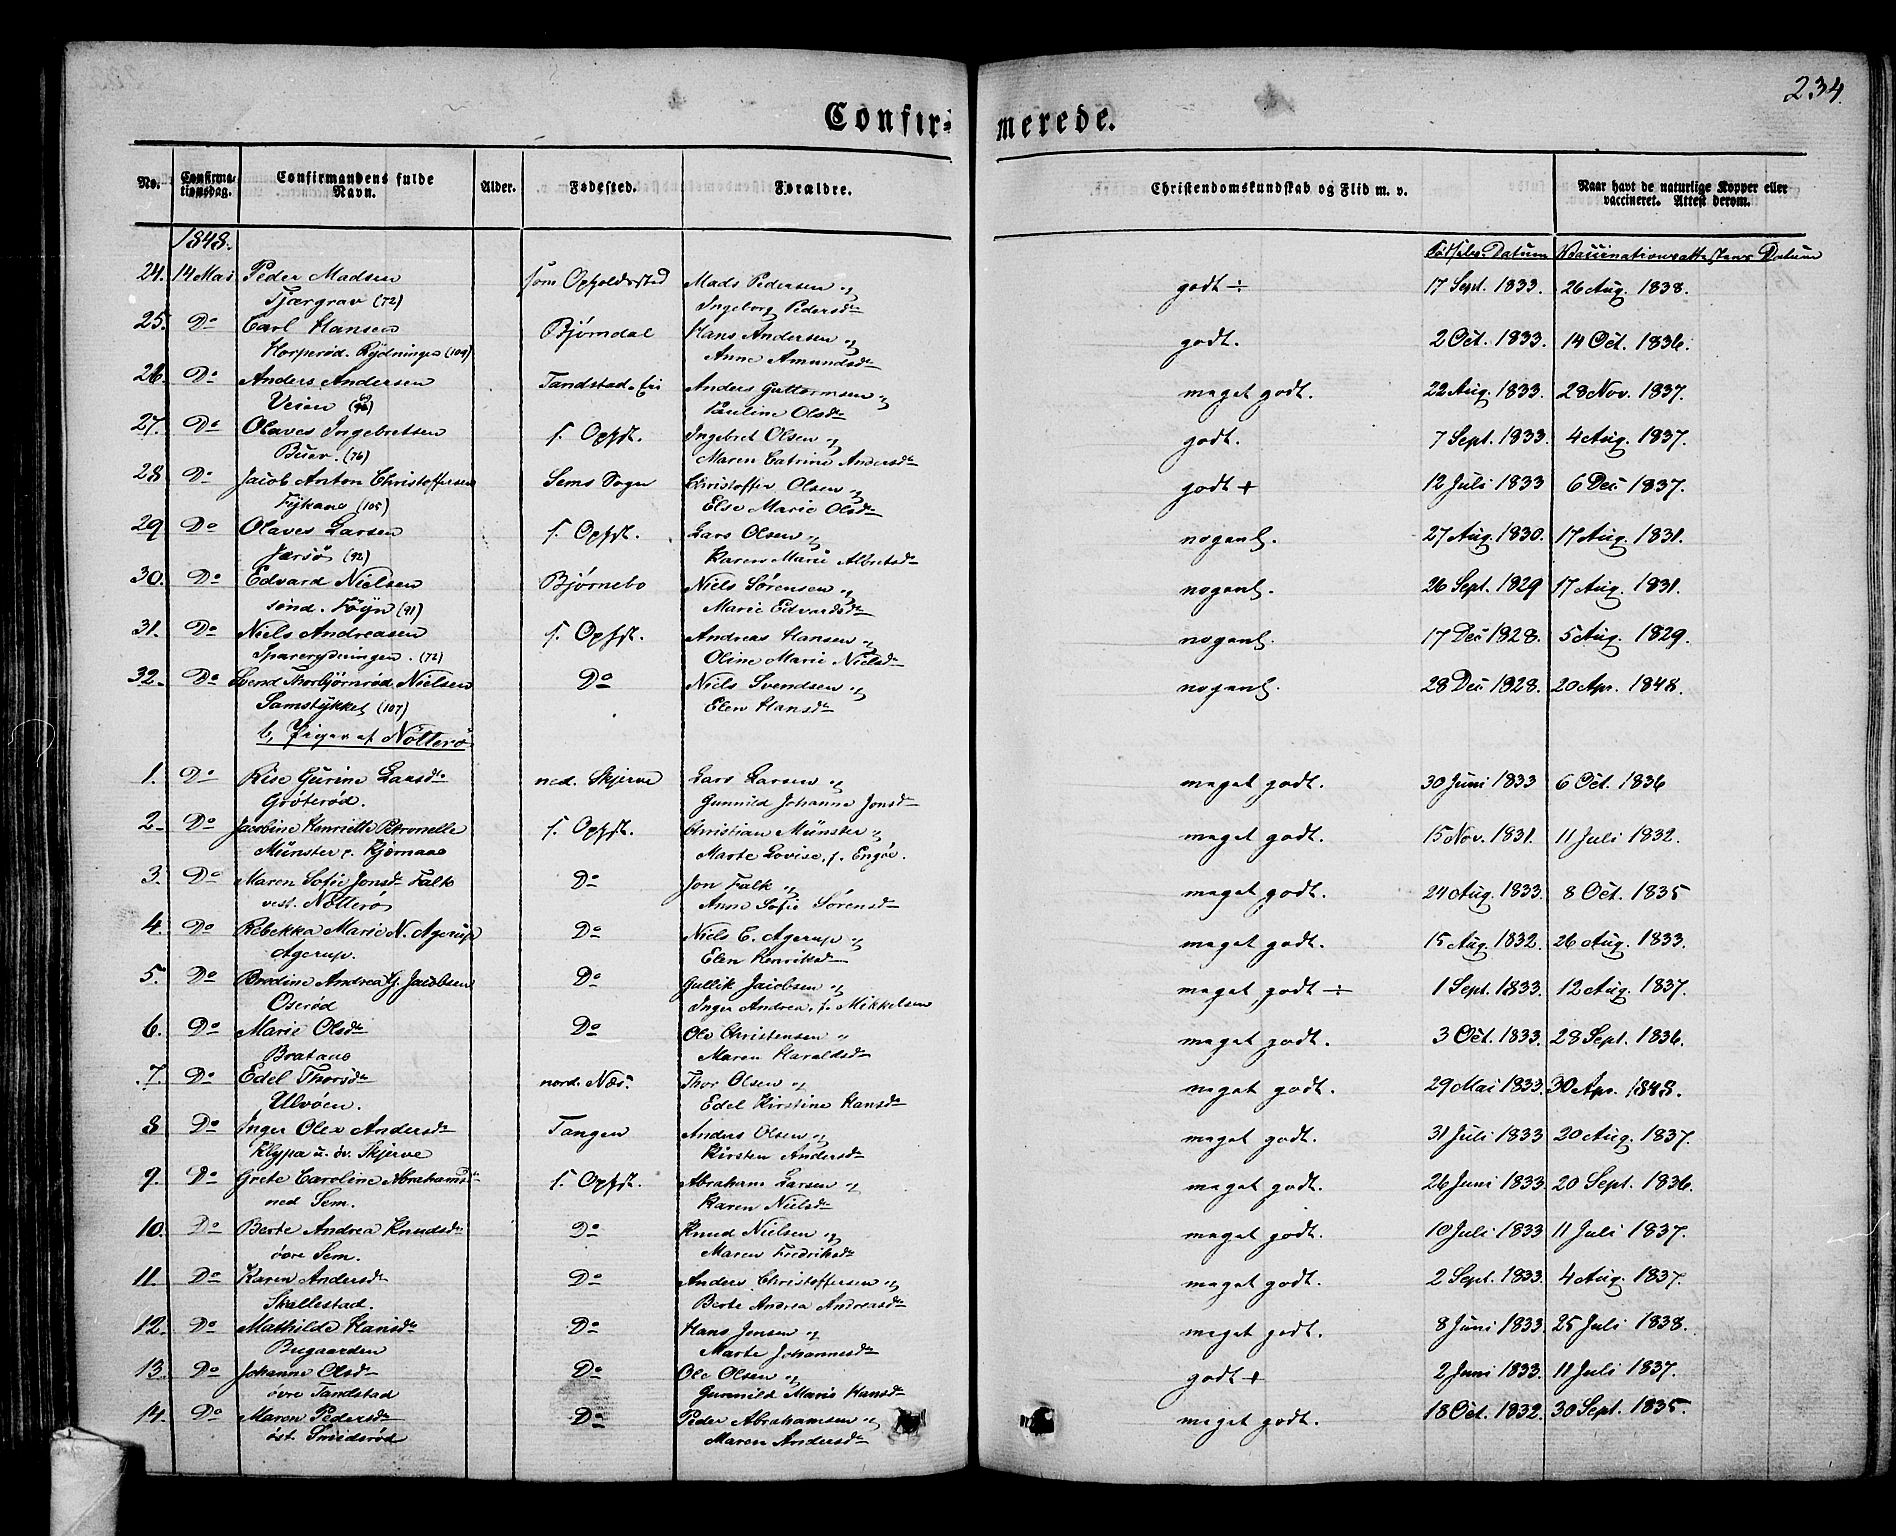 234.
Confirmerede.
No. Confirmationsdag. Confirmandens fulde Navn. Alder. Fødested. Forældre. Christendomskundskab og Flid m. v. Naar havt de naturlige Kopper eller vaccineret. Attest derom.
1848. Fødsels-Datum Vaccinationsattestens Datum
24. 14 Mai Peder Madsen som Opholdssted Mads Pedersen og godt ÷ 17 Sept. 1833. 26 Aug. 1838.
Tjærgrav (72) Ingeborg Pedersdr
25. Do Carl Hansen Bjørndal Hans Andersen og godt. 2 Oct. 1833. 14 Oct. 1836.
Horperød. Rydningen (109) Anne Amundsdr
26. Do Anders Andersen Tandstad-Eie Anders Guttormsen og meget godt. 22 Aug. 1833. 28 Nov. 1837.
Veien Pauline Olsdr
27. Do Olaves Ingebretsen s. Ophst. Ingebret Olsen og godt. 7 Sept. 1833. 4 Aug. 1837.
Buer. (76) Maren Catrine Andersdr
28 Do Jacob Anton Christoffersen Sems Sogn Christoffer Olsen og godt + 12 Juli 1833 6 Dec 1837.
(105) Else Marie Olsdr
29 Do Olaves Larsen s. Ophst. Lars Olsen og nogenl. 27 Aug. 1830. 17 Aug. 1831.
Jærsø (92) Karen Marie Albretsdr
30. Do Edvard Nielsen Bjørnebo Niels Sørensen og nogenl. 26 Sept. 1829 17 Aug. 1831.
sønd. Føyn (91) Marie Edvardsdr
31. Do Niels Andreasen s. Ophst. Andreas Hansen og nogenl. 17 Dec 1828. 5 Aug. 1829.
Sparerydningen. (72) Oline Marie Nielsdr
32. Do Svend Thorbjørnrød Nielsen Do Niels Svendsen og nogenl. 28 Dec 1828. 20 Apr. 1848.
Samstykket (107) Elen Hansdr
b, Piger af Nøtterø
1. Do Rise Gurine Larsdr ned. Skjerve Lars Larsen og meget godt. 30 Juni 1833 6 Oct. 1836
Grøterød. Gunnild Johanne Jonsdr
2. Do Jacobine Henriette Petronelle s. Ophst. Christian Münster og meget godt. 15 Nov. 1831. 11 Juli 1832.
Münster p. Kjørnaae Marte Lovise, f. Engøe.
3. Do Maren Sofie Jonsdr Falk Do Jon Falk og meget godt. 24 Aug. 1833. 8 Oct. 1835
vest. Nøtterø Anne Sofie Sørensdr
4. Do Rebekka Marie N. Agerup Do Niels C. Agerup og meget godt. 15 Aug. 1832. 26 Aug. 1833.
Agerup. Elen Henriksdr
5. Do Bredine Andrea G. Jacobsen Do Gullik Jacobsen og meget godt ÷ 1 Sept. 1833. 12 Aug. 1837.
Oserød Inger Andrea, f. Mikkelsen
6. Do Marie Olsdr Do Ole Christensen " meget godt. 3 Oct. 1833. 28 Sept. 1836.
Bratane Maren Haraldsdr
7. Do Edel Thorsdr nord. Næs. Thor Olsen og meget godt. 29 Mai 1833. 30 Apr. 1848.
Ulvøen. Edel Kirstine Hansdr
8 Do Inger Olea Andersdr Tangen Anders Olsen og meget godt. 31 Juli 1833 20 Aug. 1837.
Klypa u. øv. Skjerve Kirsten Andersdr
9. Do Grete Caroline Abrahamsdr s. Ophst. Abraham Larsen og meget godt. 26 Juni 1833. 20 Sept. 1836.
ned Sem. Karen Nielsdr
10. Do Berte Andrea Knudsdr Do Knud Nielsen og meget godt. 10 Juli 1833. 11 Juli 1837.
øvre Sem. Maren Fredriksdr
11. Do Karen Andersdr Do Anders Christoffersen og meget godt. 2 Sept. 1833. 4 Aug. 1837.
Skallestad. Berte Andrea Andreasdr
12. Do Mathilde Hansdr Do Hans Jensen og meget godt. 8 Juni 1833. 25 Juli 1838.
Bugaarden Marte Johannesdr
13. Do Johanne Olsdr Do Ole Olsen og godt + 2 Juni 1833. 11 Juli 1837.
øvre Tandstad Gunnild Marie Hansdr
14. Do Maren Pedersdr Do Peder Abrahamsen og meget godt. 18 Oct. 1832. 30 Sept. 1835.
øst. Smidsrød Maren Andersdr